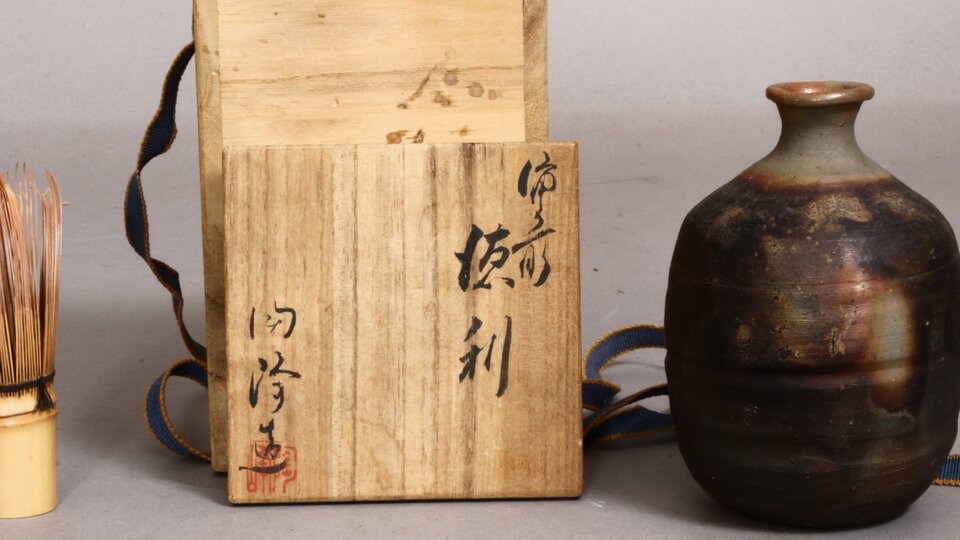 備前
徳利
陶 造